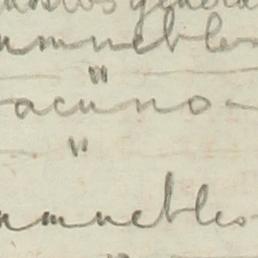 genera
nmuebles
"
acuno-
"
nmuebles